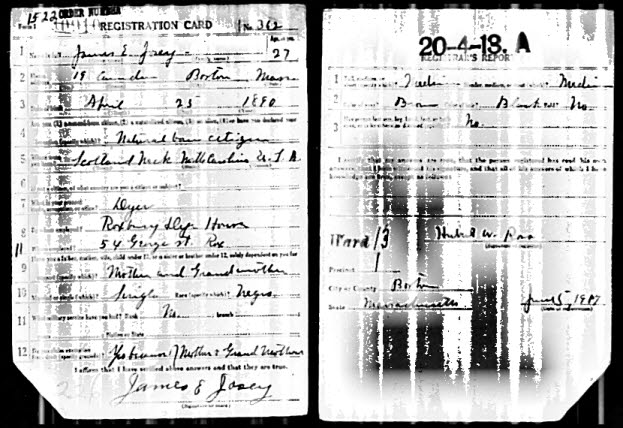 1522 ORDER NUMBER
Form 1 REGISTRATION CARD No. 362
1 James E Josey Age, in yrs. 27
2 19 Camden Boston Mass
3 April 25 1890
4 Are you (1) a natural-born citizen, (2) a naturalized citizen, (3) an alien, (4) or have you declared your
(specify which)? Natural born citizen
5 Scotland Neck North Carolina U.S.A.
6 If not a citizen, of what country are you a citizen or subject?
7 What is your present trade, occupation, or office? Dyer
8 By whom employed? Roxbury Dye House
Where employed? 54 George St. Rox
9 Have you a father, mother, wife, child under 12, or a sister or brother under 12, solely dependent on you for
(specify which)? Mother and Grandmother
10 Married or single (which)? Single Race (specify which)? Negro
11 What military service have you had? Rank No branch
years Nation or State
12 Do you claim exemption (specify grounds)? Yes because of Mother & Grand Mother
I affirm that I have verified above answers and that they are true.
James E Josey
(Signature or mark)
20-4-13. A
REGISTRAR'S REPORT
1 Medium
2 Brown Black No
3 No
I certify that my answers are true, that the person registered has read his own
answers, that I have witnessed his signature, and that all of his answers of which I have
knowledge are true, except as follows:
Ward 13
(Signature of registrar)
Precinct 1
City or County Boston
State Massachusetts June 5, 1917
(Date of registration)